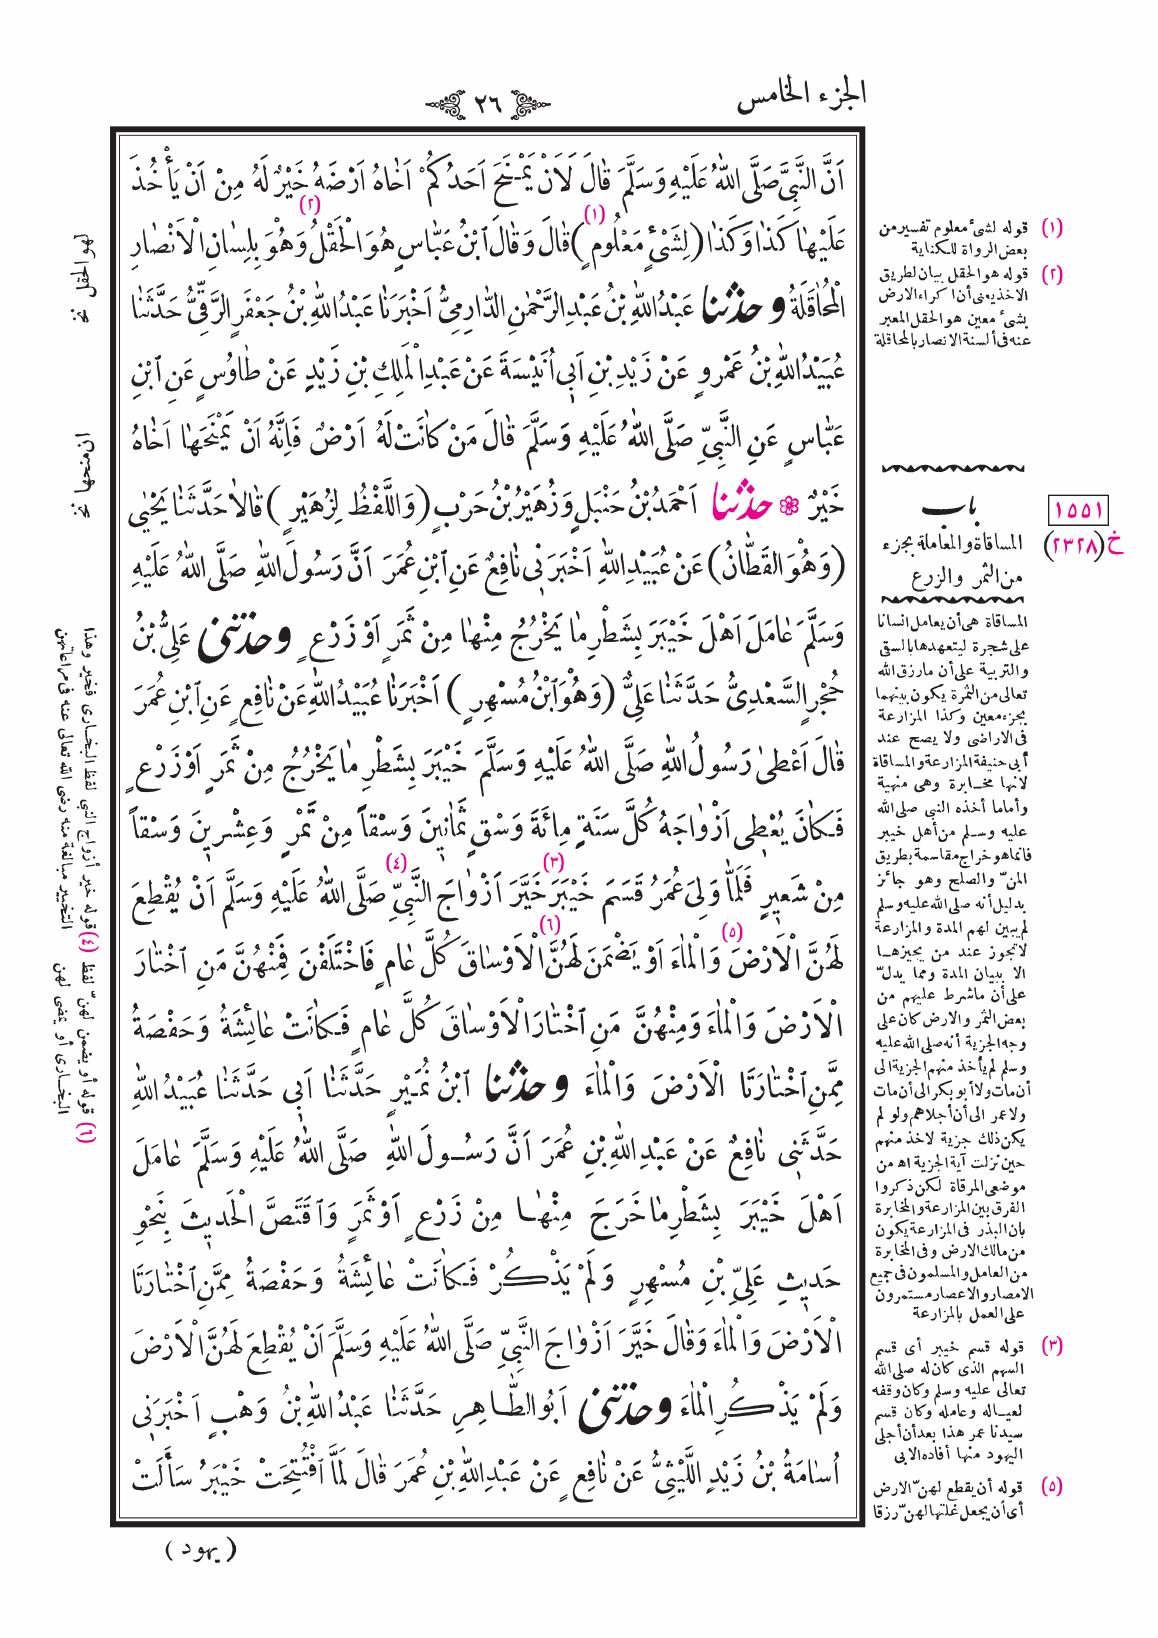 الجزء الخامس
٢٦
اَنَّ النَّبِيَّ صَلَّى اللّٰهُ عَلَيْهِ وَسَلَّمَ قَالَ لَاَنْ يَمْنَحَ اَحَدُكُمْ اَخَاهُ اَرْضَهُ خَيْرٌ لَهُ مِنْ اَنْ يَأْخُذَ
عَلَيْهَا كَذَا وَكَذَا (لِشَىْءٍ مَعْلُومٍ) (١) قَالَ وَقَالَ ابْنُ عَبَّاسٍ هُوَ الْحَقْلُ (٢) وَهُوَ بِلِسَانِ الْاَنْصَارِ
الْمُحَاقَلَةُ و حدثنا عَبْدُ اللّٰهِ بْنُ عَبْدِ الرَّحْمٰنِ الدَّارِمِيُّ اَخْبَرَنَا عَبْدُ اللّٰهِ بْنُ جَعْفَرٍ الرَّقِّيُّ حَدَّثَنَا
عُبَيْدُ اللّٰهِ بْنُ عَمْرٍو عَنْ زَيْدِ بْنِ اَبِي اُنَيْسَةَ عَنْ عَبْدِ الْمَلِكِ بْنِ زَيْدٍ عَنْ طَاوُسٍ عَنِ ابْنِ
عَبَّاسٍ عَنِ النَّبِيِّ صَلَّى اللّٰهُ عَلَيْهِ وَسَلَّمَ قَالَ مَنْ كَانَتْ لَهُ اَرْضٌ فَاِنَّهُ اَنْ يَمْنَحَهَا اَخَاهُ
خَيْرٌ ❀ حدثنا اَحْمَدُ بْنُ حَنْبَلٍ وَزُهَيْرُ بْنُ حَرْبٍ (وَاللَّفْظُ لِزُهَيْرٍ) قَالَا حَدَّثَنَا يَحْيٰى
(وَهُوَ الْقَطَّانُ) عَنْ عُبَيْدِ اللّٰهِ اَخْبَرَنِي نَافِعٌ عَنِ ابْنِ عُمَرَ اَنَّ رَسُولَ اللّٰهِ صَلَّى اللّٰهُ عَلَيْهِ
وَسَلَّمَ عَامَلَ اَهْلَ خَيْبَرَ بِشَطْرِ مَا يَخْرُجُ مِنْهَا مِنْ ثَمَرٍ اَوْ زَرْعٍ وحدثنى عَلِيُّ بْنُ
حُجْرٍ السَّعْدِيُّ حَدَّثَنَا عَلِيٌّ (وَهُوَ ابْنُ مُسْهِرٍ) اَخْبَرَنَا عُبَيْدُ اللّٰهِ عَنْ نَافِعٍ عَنِ ابْنِ عُمَرَ
قَالَ اَعْطٰى رَسُولُ اللّٰهِ صَلَّى اللّٰهُ عَلَيْهِ وَسَلَّمَ خَيْبَرَ بِشَطْرِ مَا يَخْرُجُ مِنْ ثَمَرٍ اَوْ زَرْعٍ
فَكَانَ يُعْطِي اَزْوَاجَهُ كُلَّ سَنَةٍ مِائَةَ وَسْقٍ ثَمَانِينَ وَسْقاً مِنْ تَمْرٍ وَعِشْرِينَ وَسْقاً
مِنْ شَعِيرٍ فَلَمَّا وَلِيَ عُمَرُ قَسَمَ خَيْبَرَ (٣) خَيَّرَ اَزْوَاجَ النَّبِيِّ (٤) صَلَّى اللّٰهُ عَلَيْهِ وَسَلَّمَ اَنْ يُقْطِعَ
لَهُنَّ الْاَرْضَ (٥) وَالْمَاءَ اَوْ يَضْمَنَ لَهُنَّ (٦) الْاَوْسَاقَ كُلَّ عَامٍ فَاخْتَلَفْنَ فَمِنْهُنَّ مَنِ اخْتَارَ
الْاَرْضَ وَالْمَاءَ وَمِنْهُنَّ مَنِ اخْتَارَ الْاَوْسَاقَ كُلَّ عَامٍ فَكَانَتْ عَائِشَةُ وَحَفْصَةُ
مِمَّنِ اخْتَارَتَا الْاَرْضَ وَالْمَاءَ و حدثنا ابْنُ نُمَيْرٍ حَدَّثَنَا اَبِي حَدَّثَنَا عُبَيْدُ اللّٰهِ
حَدَّثَنِي نَافِعٌ عَنْ عَبْدِ اللّٰهِ بْنِ عُمَرَ اَنَّ رَسُولَ اللّٰهِ صَلَّى اللّٰهُ عَلَيْهِ وَسَلَّمَ عَامَلَ
اَهْلَ خَيْبَرَ بِشَطْرِ مَا خَرَجَ مِنْهَا مِنْ زَرْعٍ اَوْ ثَمَرٍ وَاقْتَصَّ الْحَدِيثَ بِنَحْوِ
حَدِيثِ عَلِيِّ بْنِ مُسْهِرٍ وَلَمْ يَذْكُرْ فَكَانَتْ عَائِشَةُ وَحَفْصَةُ مِمَّنِ اخْتَارَتَا
الْاَرْضَ وَالْمَاءَ وَقَالَ خَيَّرَ اَزْوَاجَ النَّبِيِّ صَلَّى اللّٰهُ عَلَيْهِ وَسَلَّمَ اَنْ يُقْطِعَ لَهُنَّ الْاَرْضَ
وَلَمْ يَذْكُرِ الْمَاءَ وحدثنى اَبُو الطَّاهِرِ حَدَّثَنَا عَبْدُ اللّٰهِ بْنُ وَهْبٍ اَخْبَرَنِي
اُسَامَةُ بْنُ زَيْدٍ اللَّيْثِيُّ عَنْ نَافِعٍ عَنْ عَبْدِ اللّٰهِ بْنِ عُمَرَ قَالَ لَمَّا افْتُتِحَتْ خَيْبَرُ سَأَلَتْ
( يهود )
(١) قوله لشىء معلوم تفسير من
بعض الرواة للكناية
(٢) قوله هو الحقل بيان لطريق
الاخذ يعنى أن اكراء الارض
بشىء معين هو الحقل المعبر
عنه فى ألسنة الانصار بالمحاقلة
١٥٥١
خ (٢٣٢٨)
باب
المساقاة والمعاملة بجزء
من الثمر والزرع
المساقاة هى أن يعامل انسانا
على شجرة ليتعهدها بالسقى
والتربية على أن مارزق الله
تعالى من الثمرة يكون بينهما
بجزء معين وكذا المزارعة
فى الاراضى ولا يصح عند
أبى حنيفة المزارعة والمساقاة
لانها مخابرة وهى منهية
وأما ما أخذه النبى صلى الله
عليه وسلم من أهل خيبر
فانما هو خراج مقاسمة بطريق
المنّ والصلح وهو جائز
بدليل أنه صلى الله عليه وسلم
لم يبين لهم المدة والمزارعة
لا تجوز عند من يجيزها
الا ببيان المدة ومما يدلّ
على أن ماشرط عليهم من
بعض الثمر والارض كان على
وجه الجزية أنه صلى الله عليه
وسلم لم يأخذ منهم الجزية الى
أن مات ولا أبو بكر الى أن مات
ولا عمر الى أن أجلاهم ولو لم
يكن ذلك جزية لاخذ منهم
حين نزلت آية الجزية اه من
موضعى المرقاة لكن ذكروا
الفرق بين المزارعة والمخابرة
بان البذر فى المزارعة يكون
من مالك الارض وفى المخابرة
من العامل والمسلمون فى جميع
الامصار والاعصار مستمرون
على العمل بالمزارعة
(٣) قوله قسم خيبر أى قسم
السهم الذى كان له صلى الله
تعالى عليه وسلم وكان وقفه
لعياله وعامله وكان قسم
سيدنا عمر هذا بعد أن أجلى
اليهود منها أفاده الابى
(٥) قوله أن يقطع لهنّ الارض
أى أن يجعل غلتها لهنّ رزقا
لهو الحقل نخ
ان يمنحها نخ
(٤) قوله خير أزواج النبى لفظ البخارى فخير وهذا
التخيير مبالغة منه رضى الله تعالى عنه فى مراعاتهن
(٦) قوله أو يضمن لهنّ لفظ
البخارى أو يمضى لهن